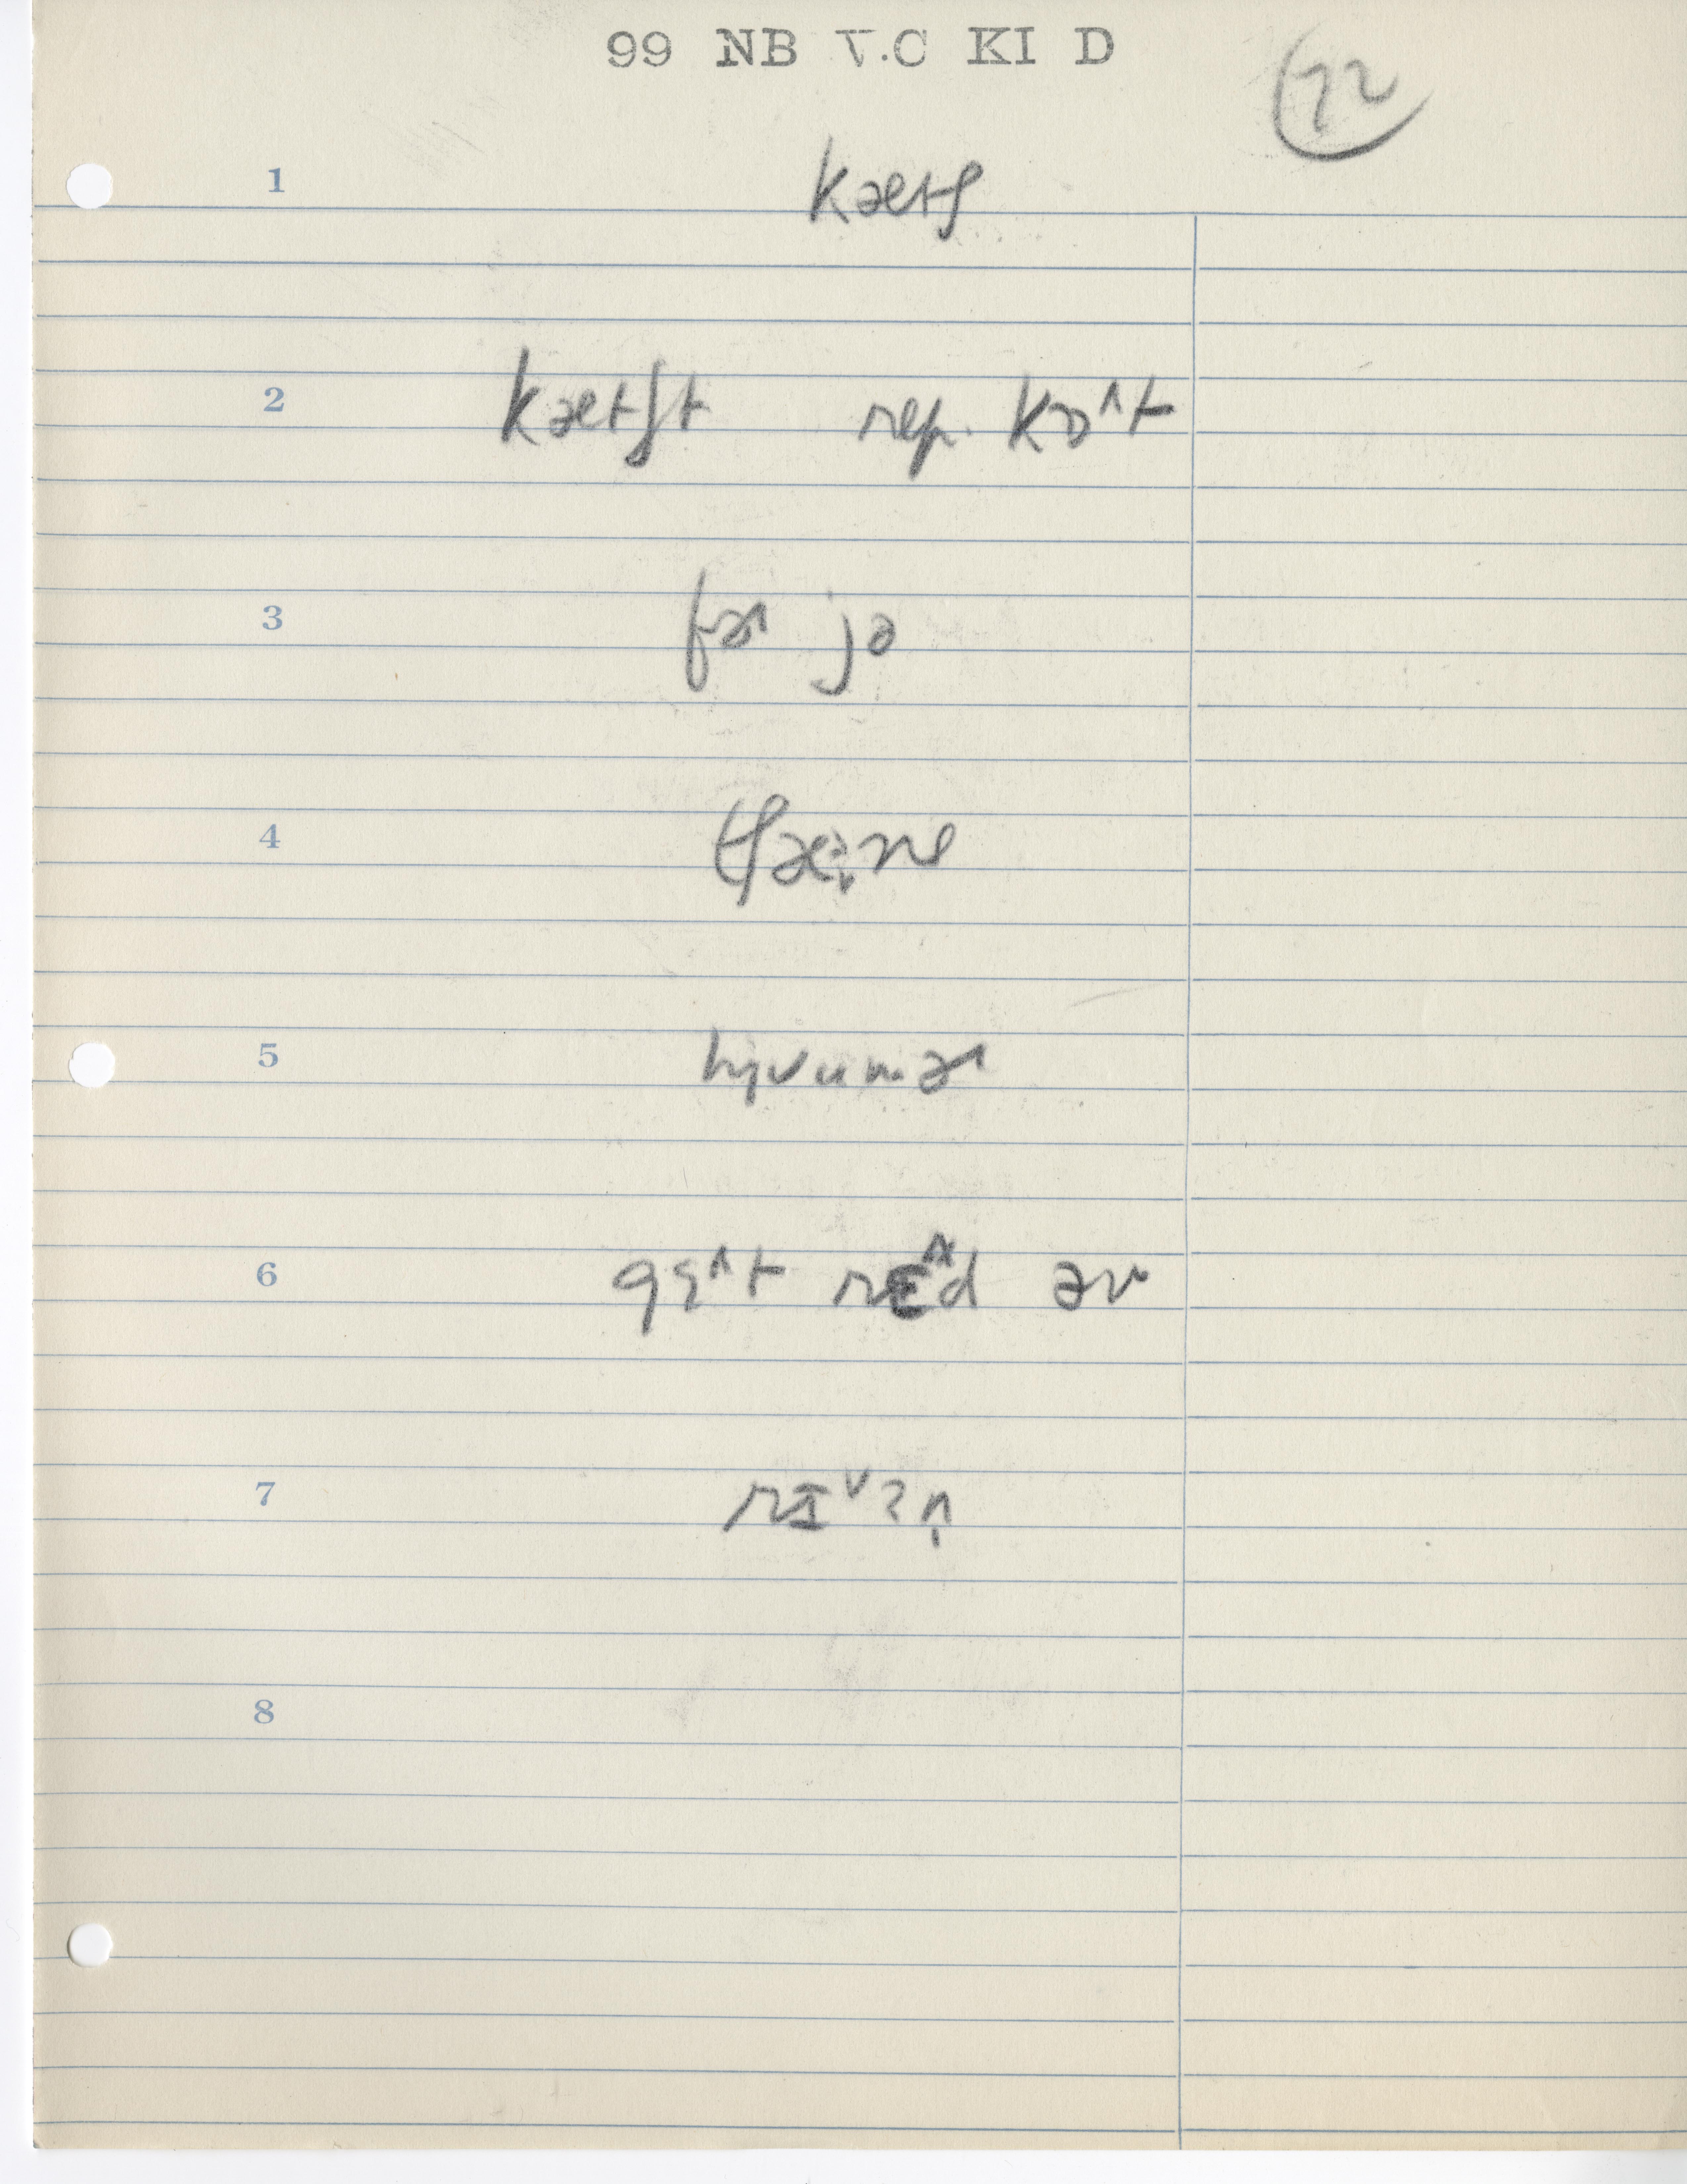 99 NB V.C KI D
72
1 kætʃ
2 kætʃt rep. kɒ^t
3 fɚ jə
4 tʃæ:nə
5 hjuumɚ
6 gɛ^t rɛ^d əv
7 rɪ^v
8